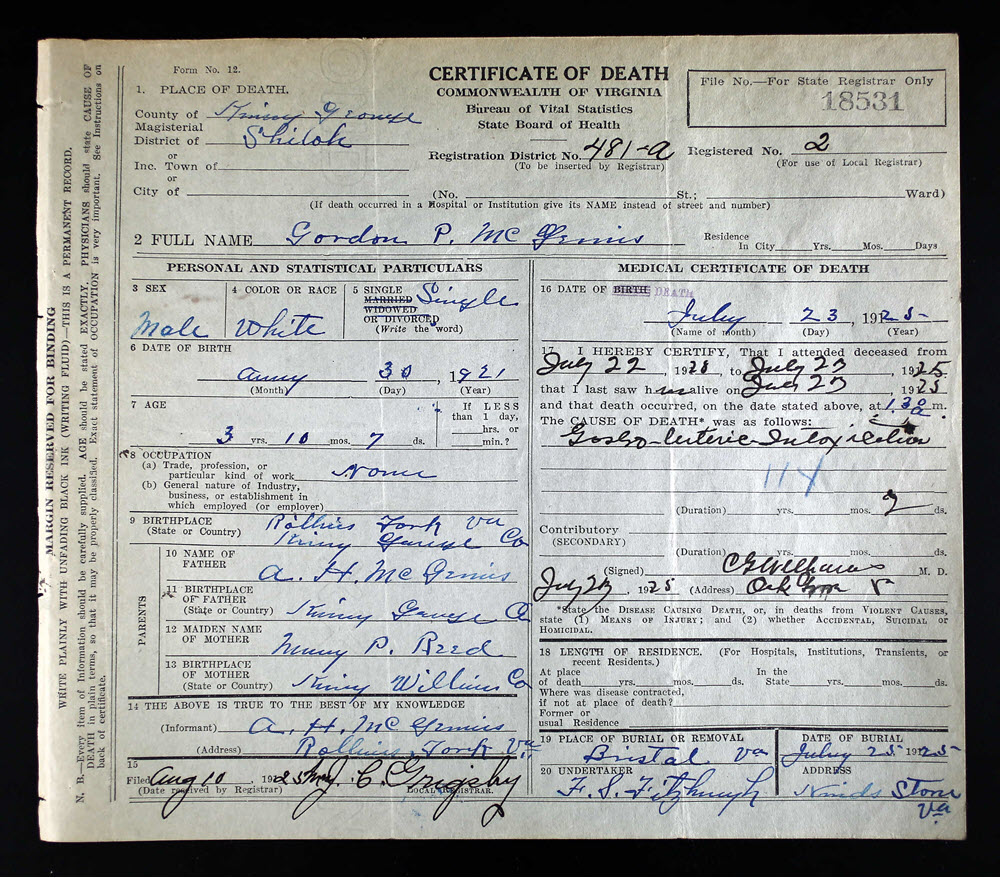 Form No. 12.
CERTIFICATE OF DEATH
COMMONWEALTH OF VIRGINIA
Bureau of Vital Statistics
State Board of Health
File No.—For State Registrar Only
18531
1. PLACE OF DEATH.
County of King George
Magisterial
District of Shiloh
or
Inc. Town of
or
City of
Registration District No. 481-a Registered No. 2
(To be inserted by Registrar) (For use of Local Registrar)
(No. St.; Ward)
(If death occurred in a Hospital or Institution give its NAME instead of street and number)
2 FULL NAME Gordon P. McGinnis
Residence
In City Yrs. Mos. Days
PERSONAL AND STATISTICAL PARTICULARS
3 SEX
Male
4 COLOR OR RACE
White
5 SINGLE
MARRIED
WIDOWED
OR DIVORCED
(Write the word)
Single
6 DATE OF BIRTH
30, 1921
(Month) (Day) (Year)
7 AGE
3 yrs. 10 mos. 7 ds.
If LESS
than 1 day,
hrs. or
min.?
8 OCCUPATION
(a) Trade, profession, or
particular kind of work None
(b) General nature of Industry,
business, or establishment in
which employed (or employer)
9 BIRTHPLACE
(State or Country)
Rollins Fork Va
King George Co
PARENTS
10 NAME OF
FATHER
A. H. McGinnis
11 BIRTHPLACE
OF FATHER
(State or Country)
King George Co
12 MAIDEN NAME
OF MOTHER
P. Reed
13 BIRTHPLACE
OF MOTHER
(State or Country)
King William Co
14 THE ABOVE IS TRUE TO THE BEST OF MY KNOWLEDGE
(Informant) A. H. McGinnis
(Address) Rollins Fork Va
15
Filed Aug 10 1925 J. C. Grigsby
(Date received by Registrar) LOCAL REGISTRAR.
MEDICAL CERTIFICATE OF DEATH
16 DATE OF BIRTH DEATH
July 23, 1925
(Name of month) (Day) (Year)
17 I HEREBY CERTIFY, That I attended deceased from
July 22, 1925, to July 23, 1925
that I last saw him alive on July 23, 1925
and that death occurred, on the date stated above, at 1.30 a m.
The CAUSE OF DEATH* was as follows:
Gastro-Enteric Intoxication
114
(Duration) yrs. mos. 2 ds.
Contributory
(SECONDARY)
(Duration) yrs. mos. ds.
(Signed) M. D.
July 23, 1925 (Address)
*State the DISEASE CAUSING DEATH, or, in deaths from VIOLENT CAUSES,
state (1) MEANS OF INJURY; and (2) whether ACCIDENTAL, SUICIDAL or
HOMICIDAL.
18 LENGTH OF RESIDENCE. (For Hospitals, Institutions, Transients, or
recent Residents.)
At place In the
of death yrs. mos. ds. State yrs. mos. ds.
Where was disease contracted,
if not at place of death?
Former or
usual Residence
19 PLACE OF BURIAL OR REMOVAL
Bristol Va
DATE OF BURIAL
July 25 1925
20 UNDERTAKER
F. S. Fitzhugh
ADDRESS
Store
Va.
MARGIN RESERVED FOR BINDING
WRITE PLAINLY WITH UNFADING BLACK INK (WRITING FLUID)—THIS IS A PERMANENT RECORD.
N. B.—Every item of Information should be carefully supplied. AGE should be stated EXACTLY. PHYSICIANS should state CAUSE OF
DEATH in plain terms, so that it may be properly classified. Exact statement of OCCUPATION is very important. See Instructions on
back of certificate.